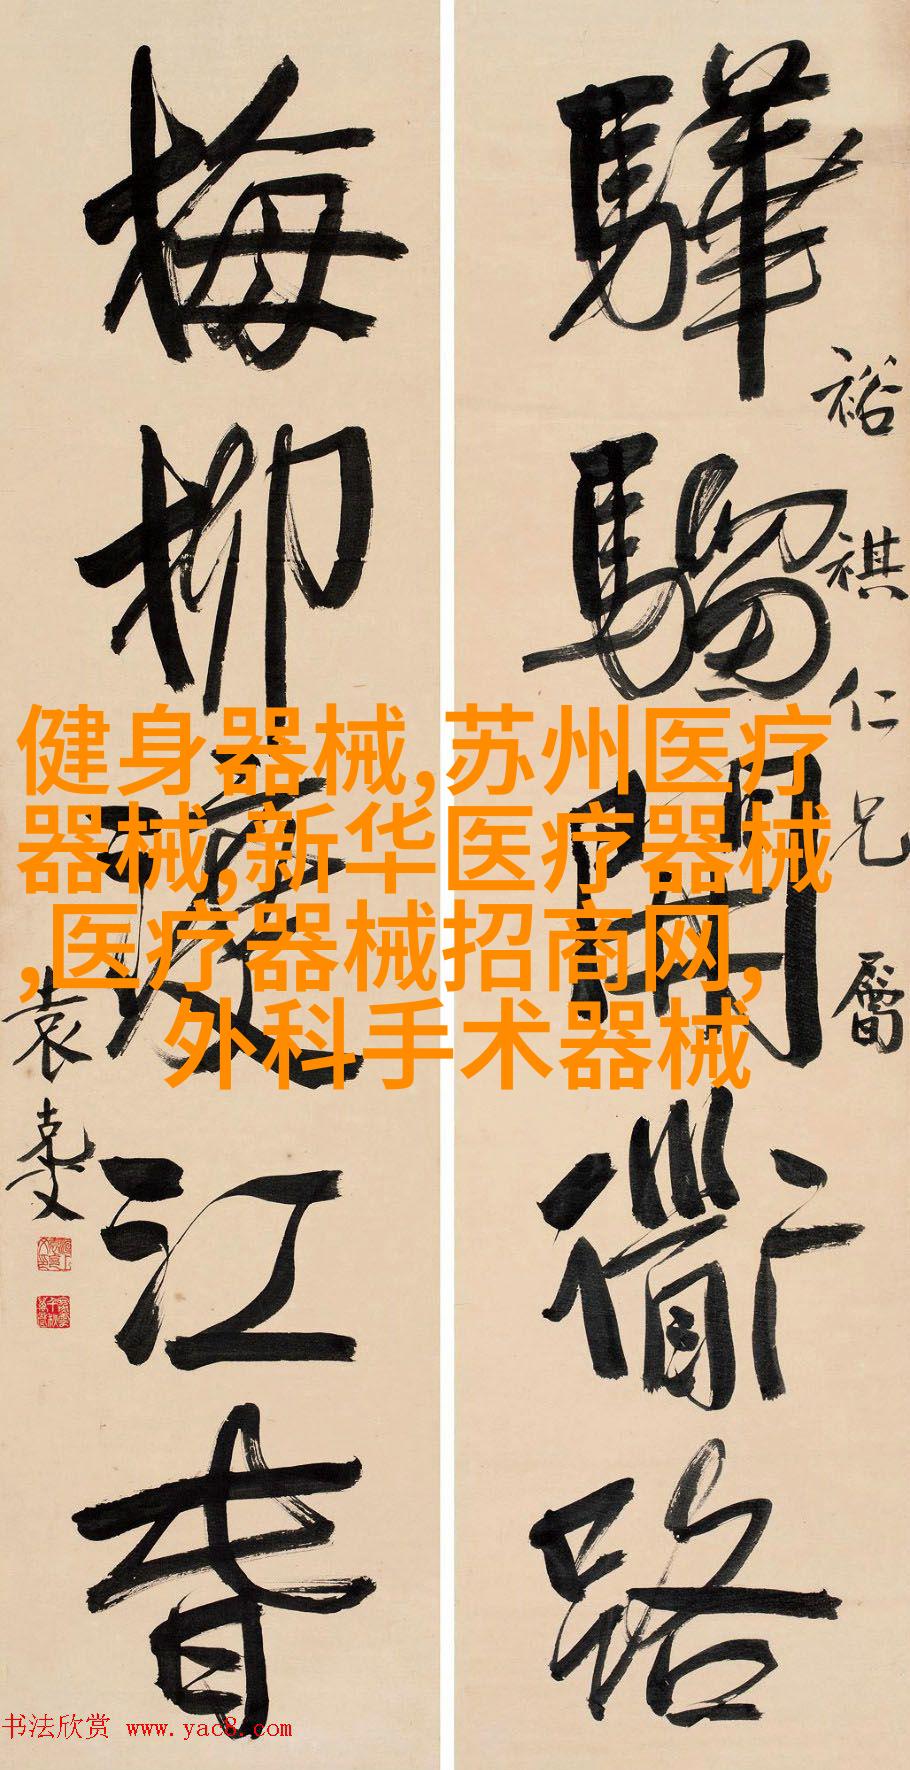 驊騮開衜路
裕祺仁兄屬
梅柳渡江春
袁克文
健身器械,苏州医疗
器械,新华医疗器械
,医疗器械招商网,
外科手术器械
书法欣赏 www.yac8.com